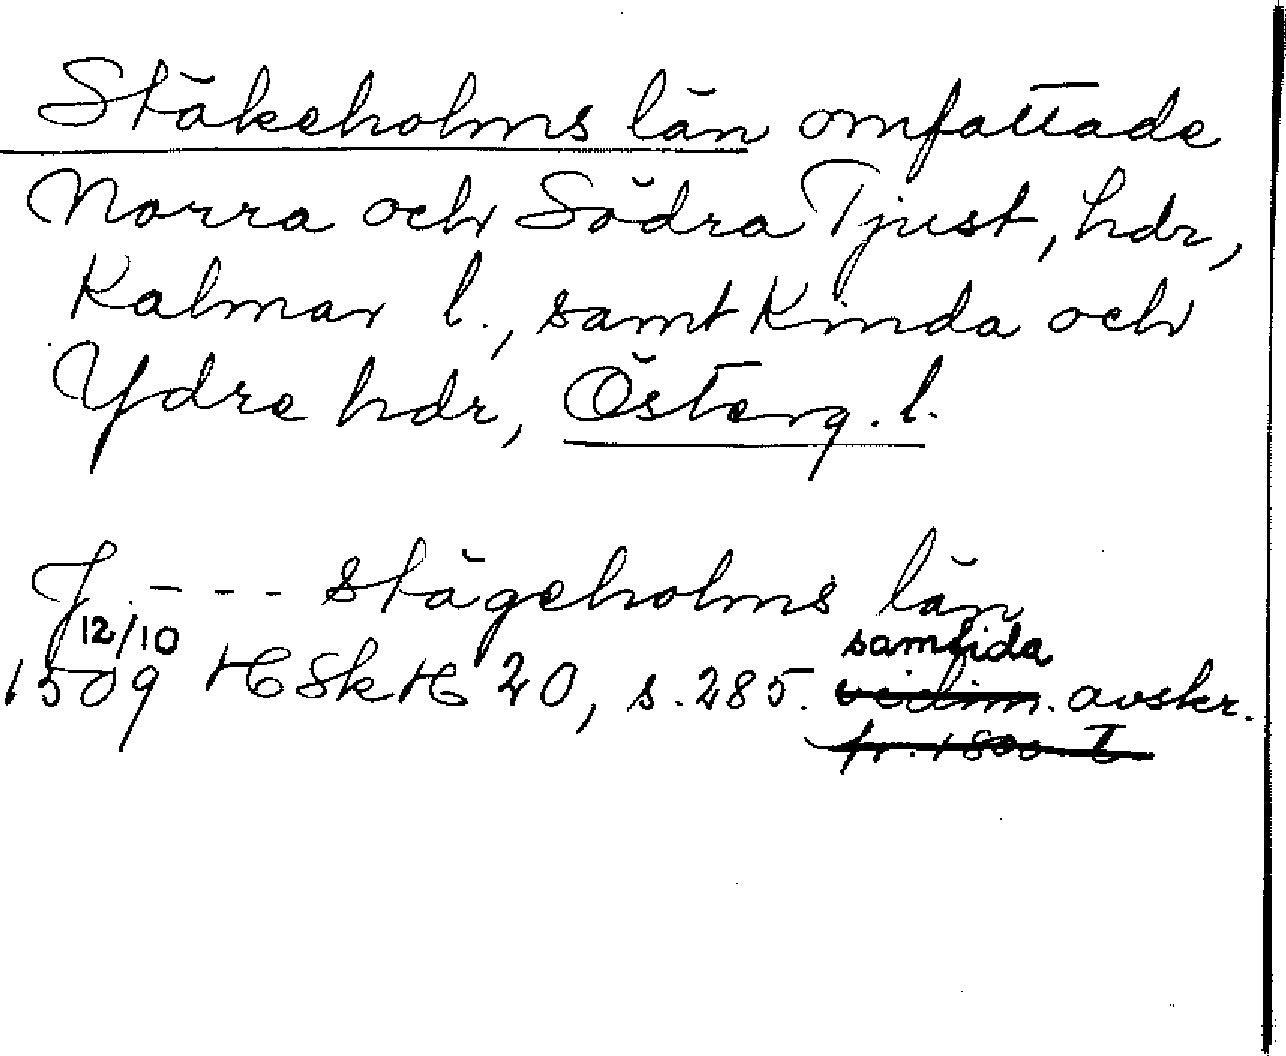 Stäkeholms län omfattade
Norra och Södra Tjust, hdr,
Kalmar l., samt Kinda och
Ydre hdr, Österg. l.
J. - - - stägeholms län
12/10 samtida
1509 HSkH 20, s. 285. vidim. avskr.
fr. 1800-t